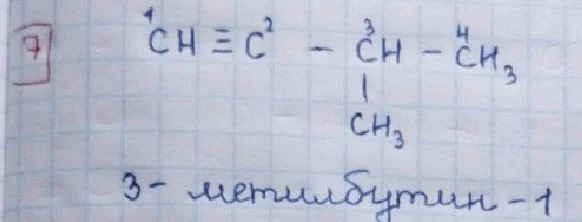 7
¹CH ≡ C² – ³CH – ⁴CH₃
|
CH₃
3 - метилбутин - 1